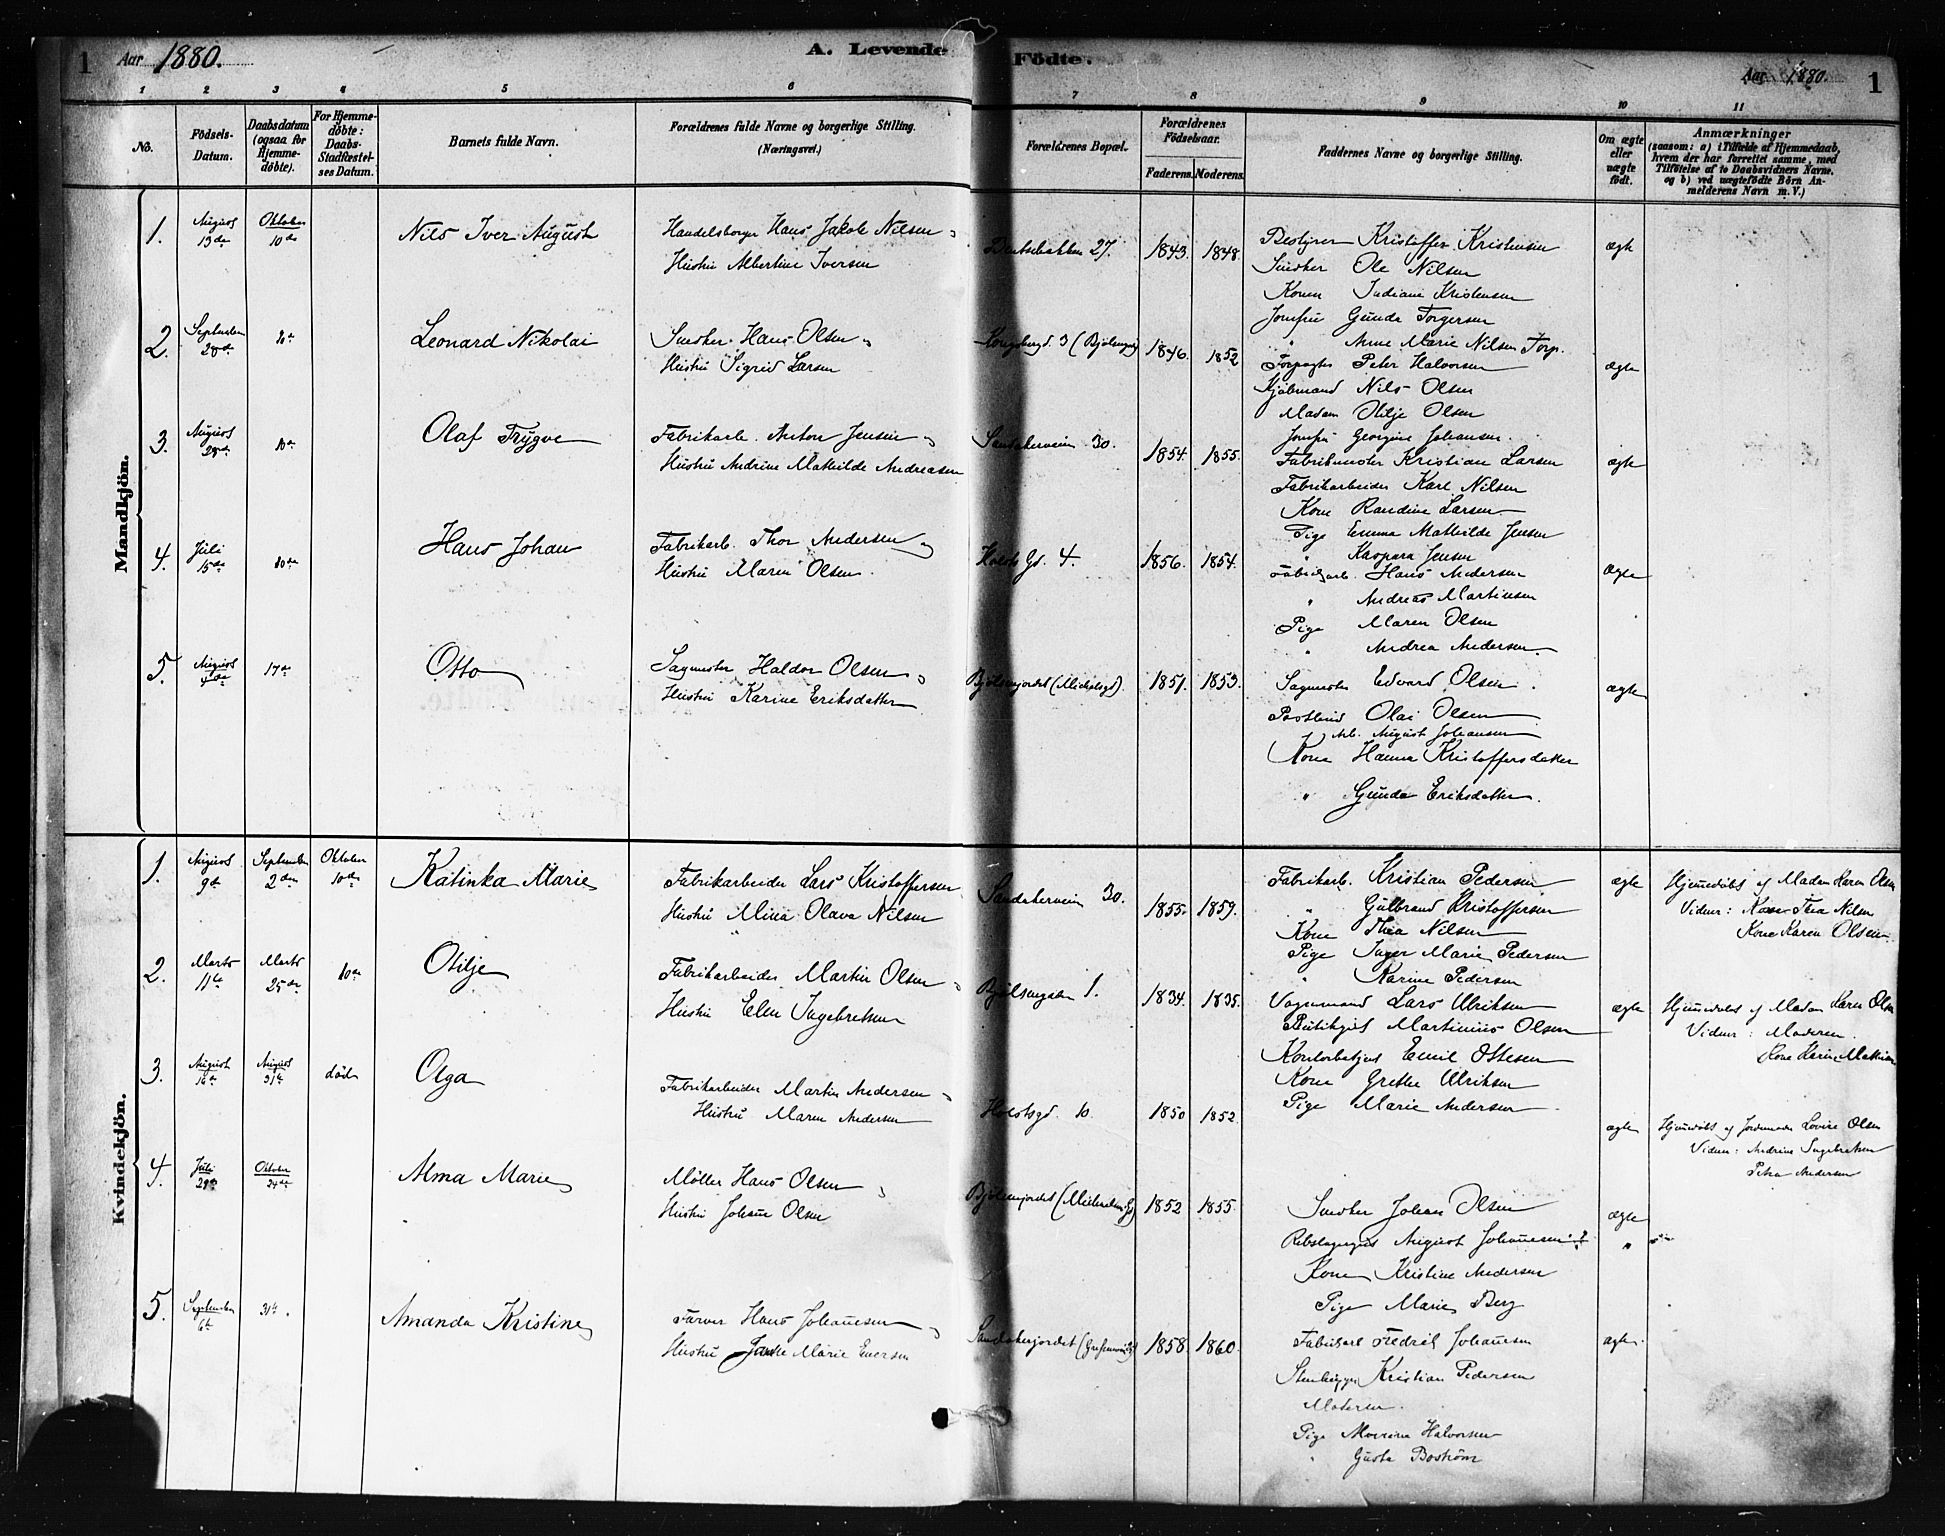 1 Aar 1880. A. Levende Födte. Aar 1880. 1
1 2 3 4 5 6 7 8 9 10 11
No.
Födsels-Datum.
Daabsdatum (ogsaa for Hjemme-döbte).
For Hjemme-döbte: Daabs-Stadfæstel-ses Datum.
Barnets fulde Navn.
Forældrenes fulde Navne og borgerlige Stilling.
(Næringsvei.)
Forældrenes Bopæl.
Forældrenes Födselsaar.
Faderens. Moderens.
Faddernes Navne og borgerlige Stilling.
Om ægte eller uægte født.
Anmærkninger
(saasom: a) i Tilfælde af Hjemmedaab,
hvem der har forrettet samme, med
Tilföielse af to Daabsvidners Navne,
og b) ved uægtefödte Börn An-
melderens Navn m. V.)
Mandkjön.
1. August 13de Oktober 10de Nils Iver August
Handelsborger Hans Jakob Nilsen
Hustru Albertine Iversen
27. 1843. 1848.
Bestyrer Kristoffer Kristensen ægte
Snedker Ole Nilsen
Konen Indiane Kristensen
Jomfru Gunda Torgersen
" Anne Marie Nilsen Torp.
2. September 10de Leonard Nikolai
Snedker Hans Olsen
Hustru Sigrid Larsen
3 (Bjølsengd) 1846. 1852
Peter Halvorsen ægte
Kjøbmand Nils Olsen
Madam Otilje Olsen
Jomfru Georgine Johansen.
3. August 28de 10de Olaf Trygve
Fabrikarb. Anton Jensen
Hustru Andrine Mathilde Andreasen
Sandakerveien 30. 1854. 1855.
Fabrikmester Kristian Larsen ægte
Fabrikarbeider Karl Nilsen
Kone Randine Larsen
Pige Emma Mathilde Jensen
" Kaspara Jensen
4. Juli 15de 10de Hans Johan
Fabrikarb. Thor Andersen
Hustru Maren Olsen.
Holsts Gd. 4. 1856. 1854.
Fabrikarb. Hans Andersen ægte
" Andreas Martinsen
Pige Maren Olsen
" Andrea Andersen.
5. August 4de 17de Otto
Sagmester Haldor Olsen
Hustru Karine Eriksdatter
Bjølsenjordet (Michelsgd). 1851. 1853.
Sagmester Edvard Olsen. ægte
Postbud Olai Olsen
Arb. August Johansen
Kone Hanna Kristoffersdatter
" Gunda Eriksdatter.
Kvindekjön.
1. August 9de September 2den Oktober 10de Katinka Marie
Fabrikarbeider Lars Kristoffersen
Hustru Mina Olava Nilsen
Sandakerveien 30. 1855. 1859.
Fabrikarb. Kristian Pedersen ægte
" Gulbrand Kristoffersen
Kone Thea Nilsen
Pige Inger Marie Pedersen
" Karine Pedersen
Hjemmedøbt af Madam Karen Olsen
Vidner: Kone Thea Nilsen
Kone Karen Olsen.
2. Marts 11te Marts 25de 10de Otilje
Fabrikarbeider Martin Olsen
Hustru Elen Ingebretsen
Bjølsengaden 1. 1834. 1835.
Vognmand Lars Ulriksen ægte
Butikgut Martinius Olsen
Kontorbetjent Emil Ottesen
Kone Grethe Ulriksen
Pige Marie Andersen
Hjemmedøbt af Madam Karen Olsen
Vidner: Moderen.
Kone Karine Mathisen
3. August 16de August 31te død Olga
Fabrikarbeider Martin Andersen
Hustru Maren Andersen
Holstsgd. 10. 1850 1852.
ægte
Hjemmedøbt af Jordemoder Lovise Olsen
Vidner: Andrine Ingebretsen
Petra Andersen
4. Juli Oktober 24de Alma Marie
Møller Hans Olsen
Hustru Johanne Olsen
Bjølsenjordet 1852 1855.
Snedker Johan Olsen ægte
August Johannesen "
Kone Kristine Andersen
Pige Marie Berg
5. September 6te 31te. Amanda Kristine
Farver Hans Johannesen
Hustru Marie Eversen
Sandakerjordet 1858 1860.
Fabrikarb Fredrik Johannesen ægte.
Kristian Pedersen
Moderen.
Pige Halvorsen
" Gusta Boström